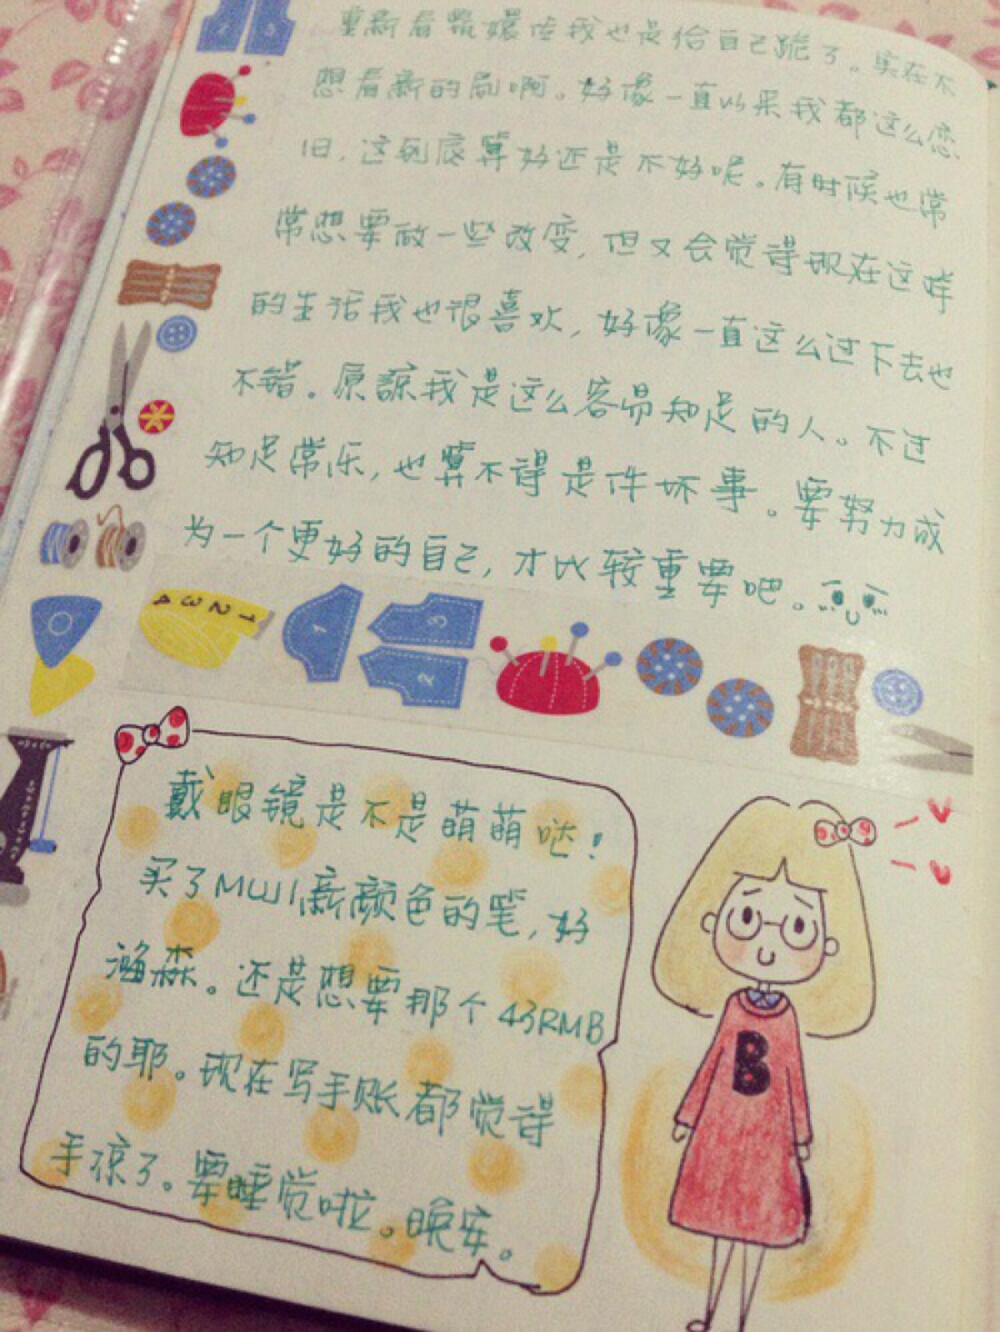 重新看甄嬛传我也是给自己跪了。实在不
想看新的剧啊。好像一直以来我都这么恋
旧,这到底算好还是不好呢。有时候也常
常想要做一些改变,但又会觉得现在这样
的生活我也很喜欢,好像一直这么过下去也
不错。原諒我是这么容易知足的人。不过
知足常乐,也算不得是件坏事。要努力成
为一个更好的自己,才比较重要吧。
1 2 3 4
1
3
2
戴眼镜是不是萌萌哒!
买了MUJI新颜色的笔,好
森。还是想要那个43RMB
的耶。现在写手账都觉得
手凉了。要睡觉啦。晚安。
B